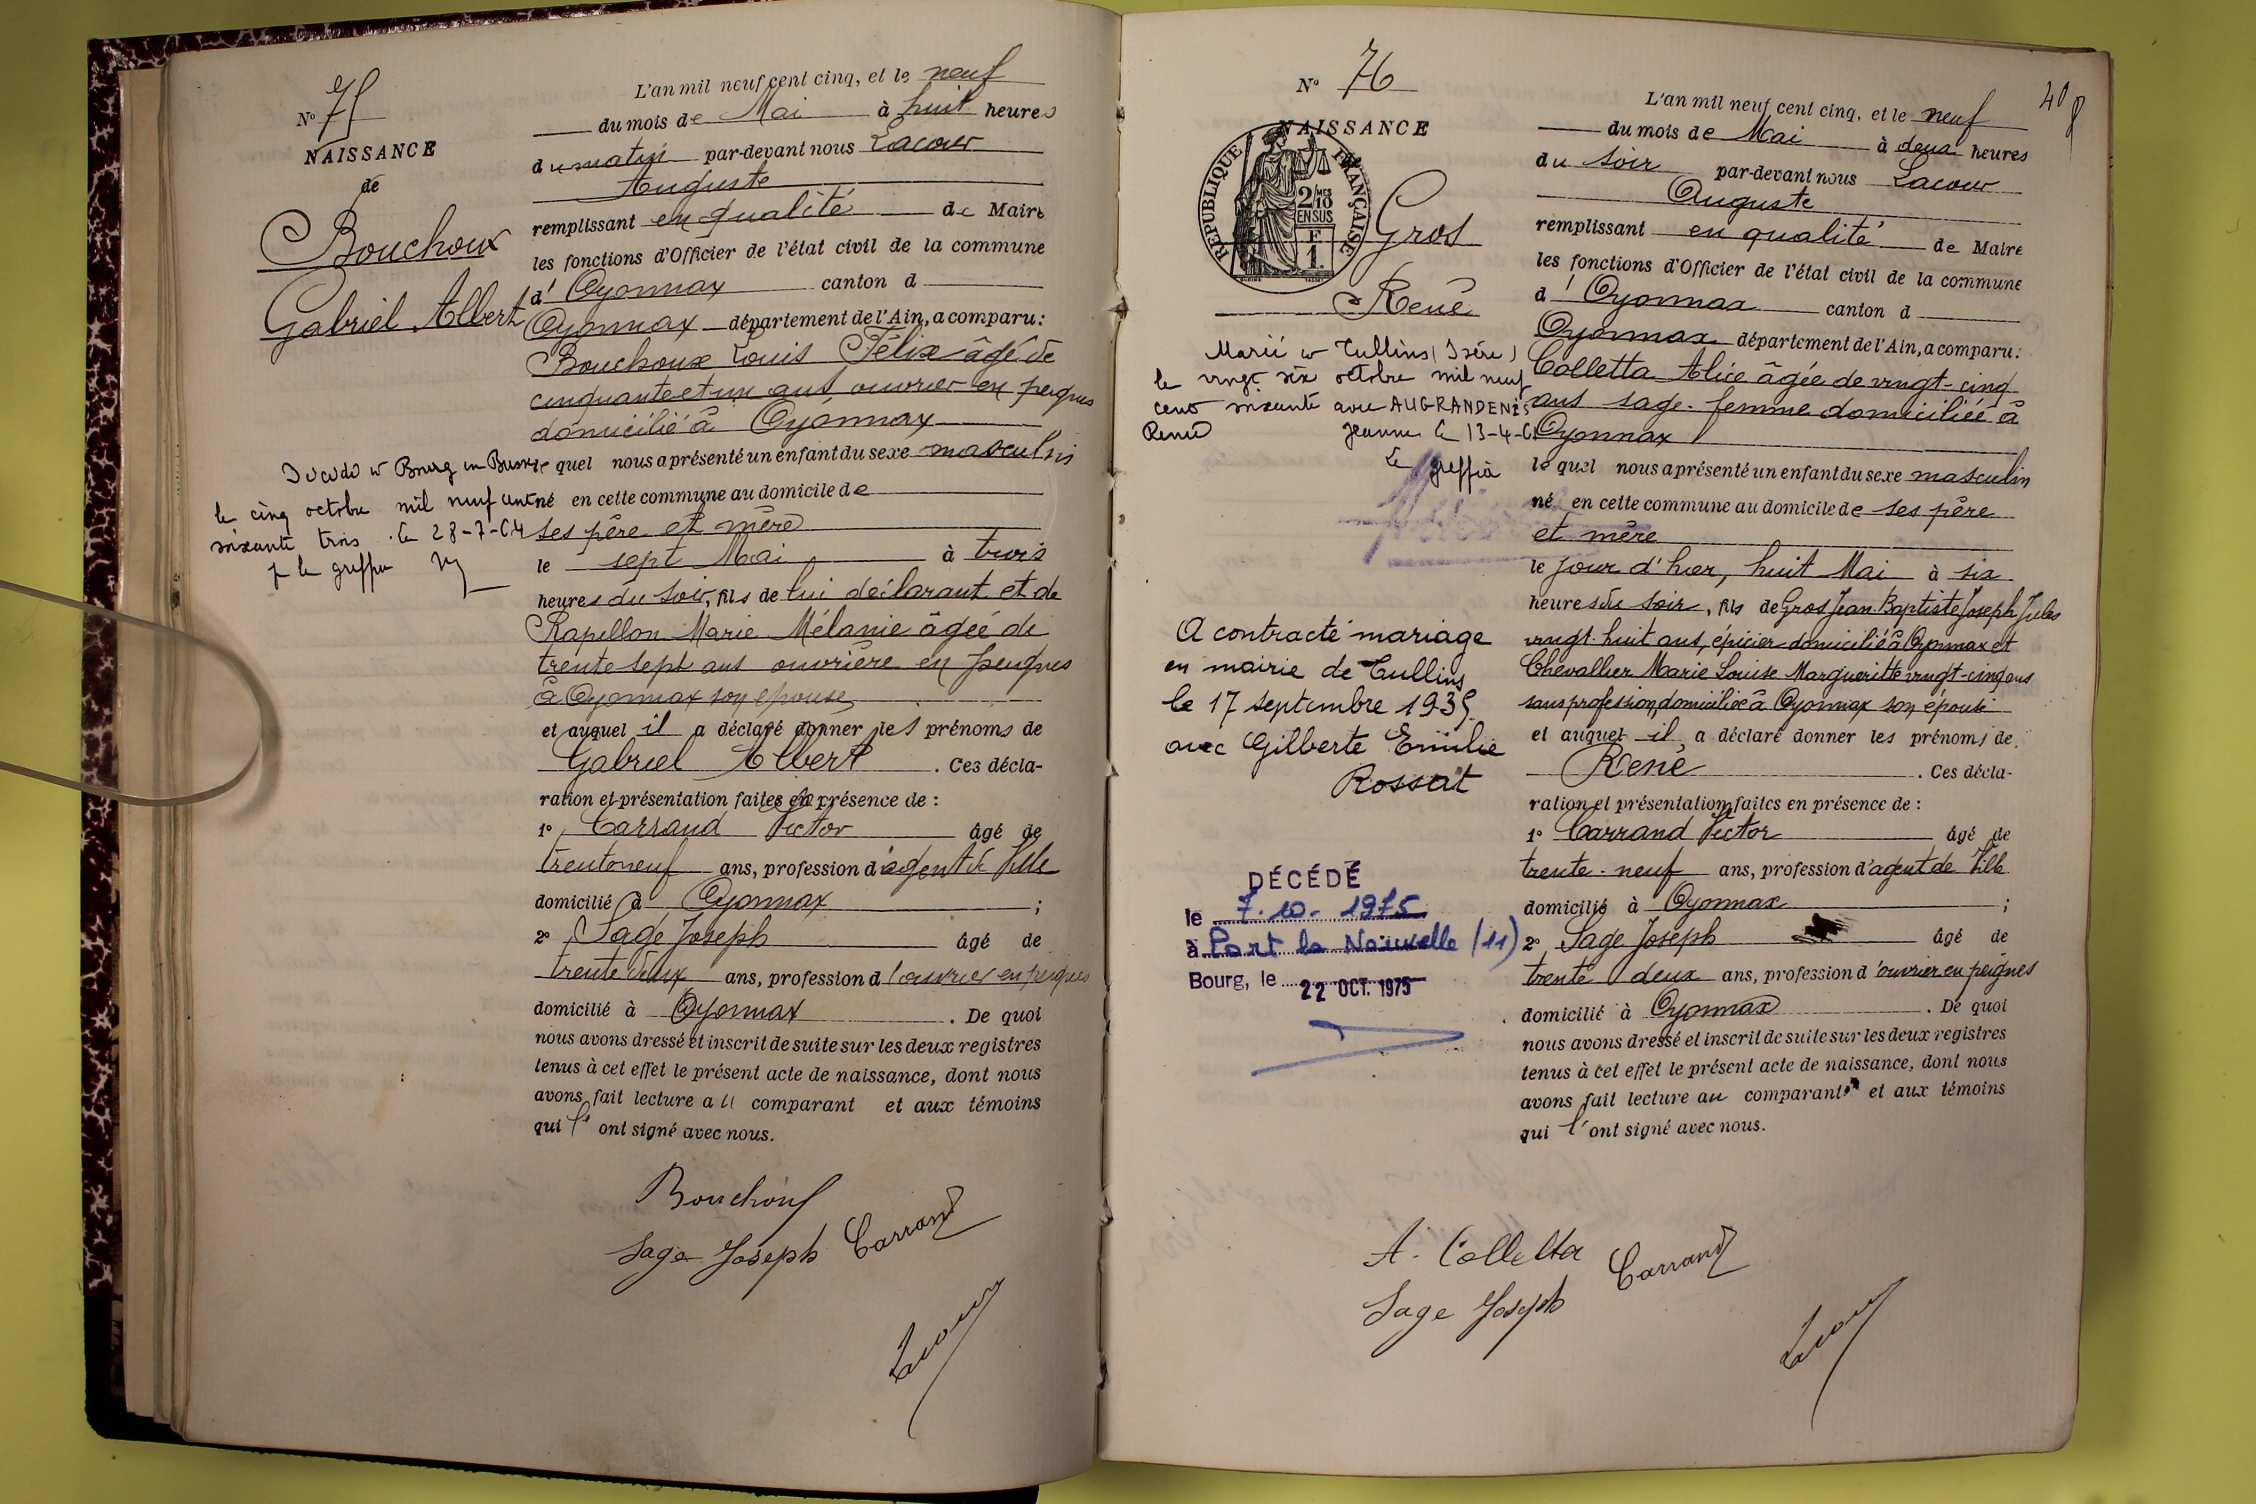 N° 75
NAISSANCE
de
Bouchoux
Gabriel Albert
L'an mil neuf cent cinq, et le neuf
du mois de Mai à huit heures
du matin par-devant nous Lacour
Auguste
remplissant en qualité de Maire
les fonctions d'Officier de l'état civil de la commune
d' Oyonnax canton d
Oyonnax département de l'Ain, a comparu:
Bouchoux Louis Félix âgé de
cinquante et un ans, ouvrier en peignes
domicilié à Oyonnax
quel nous a présenté un enfant du sexe masculin
né en cette commune au domicile de
ses père et mère
le sept Mai à trois
heures du soir, fils de lui déclarant et de
Rapillon Marie Mélanie âgée de
trente sept ans ouvrière en peignes
à Oyonnax son épouse
et auquel il a déclaré donner les prénoms de
Gabriel Albert. Ces décla-
ration et présentation faites en présence de :
1° Carrand Victor âgé de
trente neuf ans, profession d'agent de Ville
domicilié à Oyonnax ;
2° Sage Joseph âgé de
trente deux ans, profession d'ouvrier en peignes
domicilié à Oyonnax. De quoi
nous avons dressé et inscrit de suite sur les deux registres
tenus à cet effet le présent acte de naissance, dont nous
avons fait lecture au comparant et aux témoins
qui l' ont signé avec nous.
Bouchoux
Sage Joseph Carrand
Lacour
Décédé à Bourg en Bresse
le cinq octobre mil neuf cent
soixante trois. Le 28-7-64
p le greffier
N° 76
NAISSANCE
RÉPUBLIQUE FRANÇAISE
2/10 MES
EN SUS
F
1.
Gros
René
40
L'an mil neuf cent cinq, et le neuf
du mois de Mai à deux heures
du soir par-devant nous Lacour
Auguste
remplissant en qualité de Maire
les fonctions d'Officier de l'état civil de la commune
d' Oyonnax canton d
Oyonnax département de l'Ain, a comparu:
Colletta Alice âgée de vingt-cinq
ans sage-femme domiciliée à
Oyonnax
lequel nous a présenté un enfant du sexe masculin
né en cette commune au domicile de ses père
et mère
le jour d'hier, huit Mai à six
heures du soir, fils de Gros Jean Baptiste Joseph Jules
vingt-huit ans, épicier domicilié à Oyonnax et
Chevallier Marie Louise Margueritte vingt-cinq ans
sans profession, domiciliée à Oyonnax son épouse
et auquel il a déclaré donner les prénoms de
René. Ces décla-
ration et présentation faites en présence de :
1° Carrand Victor âgé de
trente-neuf ans, profession d'agent de Ville
domicilié à Oyonnax ;
2° Sage Joseph âgé de
trente deux ans, profession d'ouvrier en peignes
domicilié à Oyonnax. De quoi
nous avons dressé et inscrit de suite sur les deux registres
tenus à cet effet le présent acte de naissance, dont nous
avons fait lecture au comparant et aux témoins
qui l' ont signé avec nous.
A. Colletta Carrand
Sage Joseph
Lacour
Marié à Tullins (Isère)
le vingt six octobre mil neuf
cent soixante avec AUGRANDENIS
Renée Jeanne le 13-4-61
Le greffier
A contracté mariage
en mairie de Tullins
le 17 septembre 1935
avec Gilberte Emilie
Rossat
DÉCÉDÉ
le 7.10.1975
à Port la Nouvelle (11)
Bourg, le 22 OCT. 1975